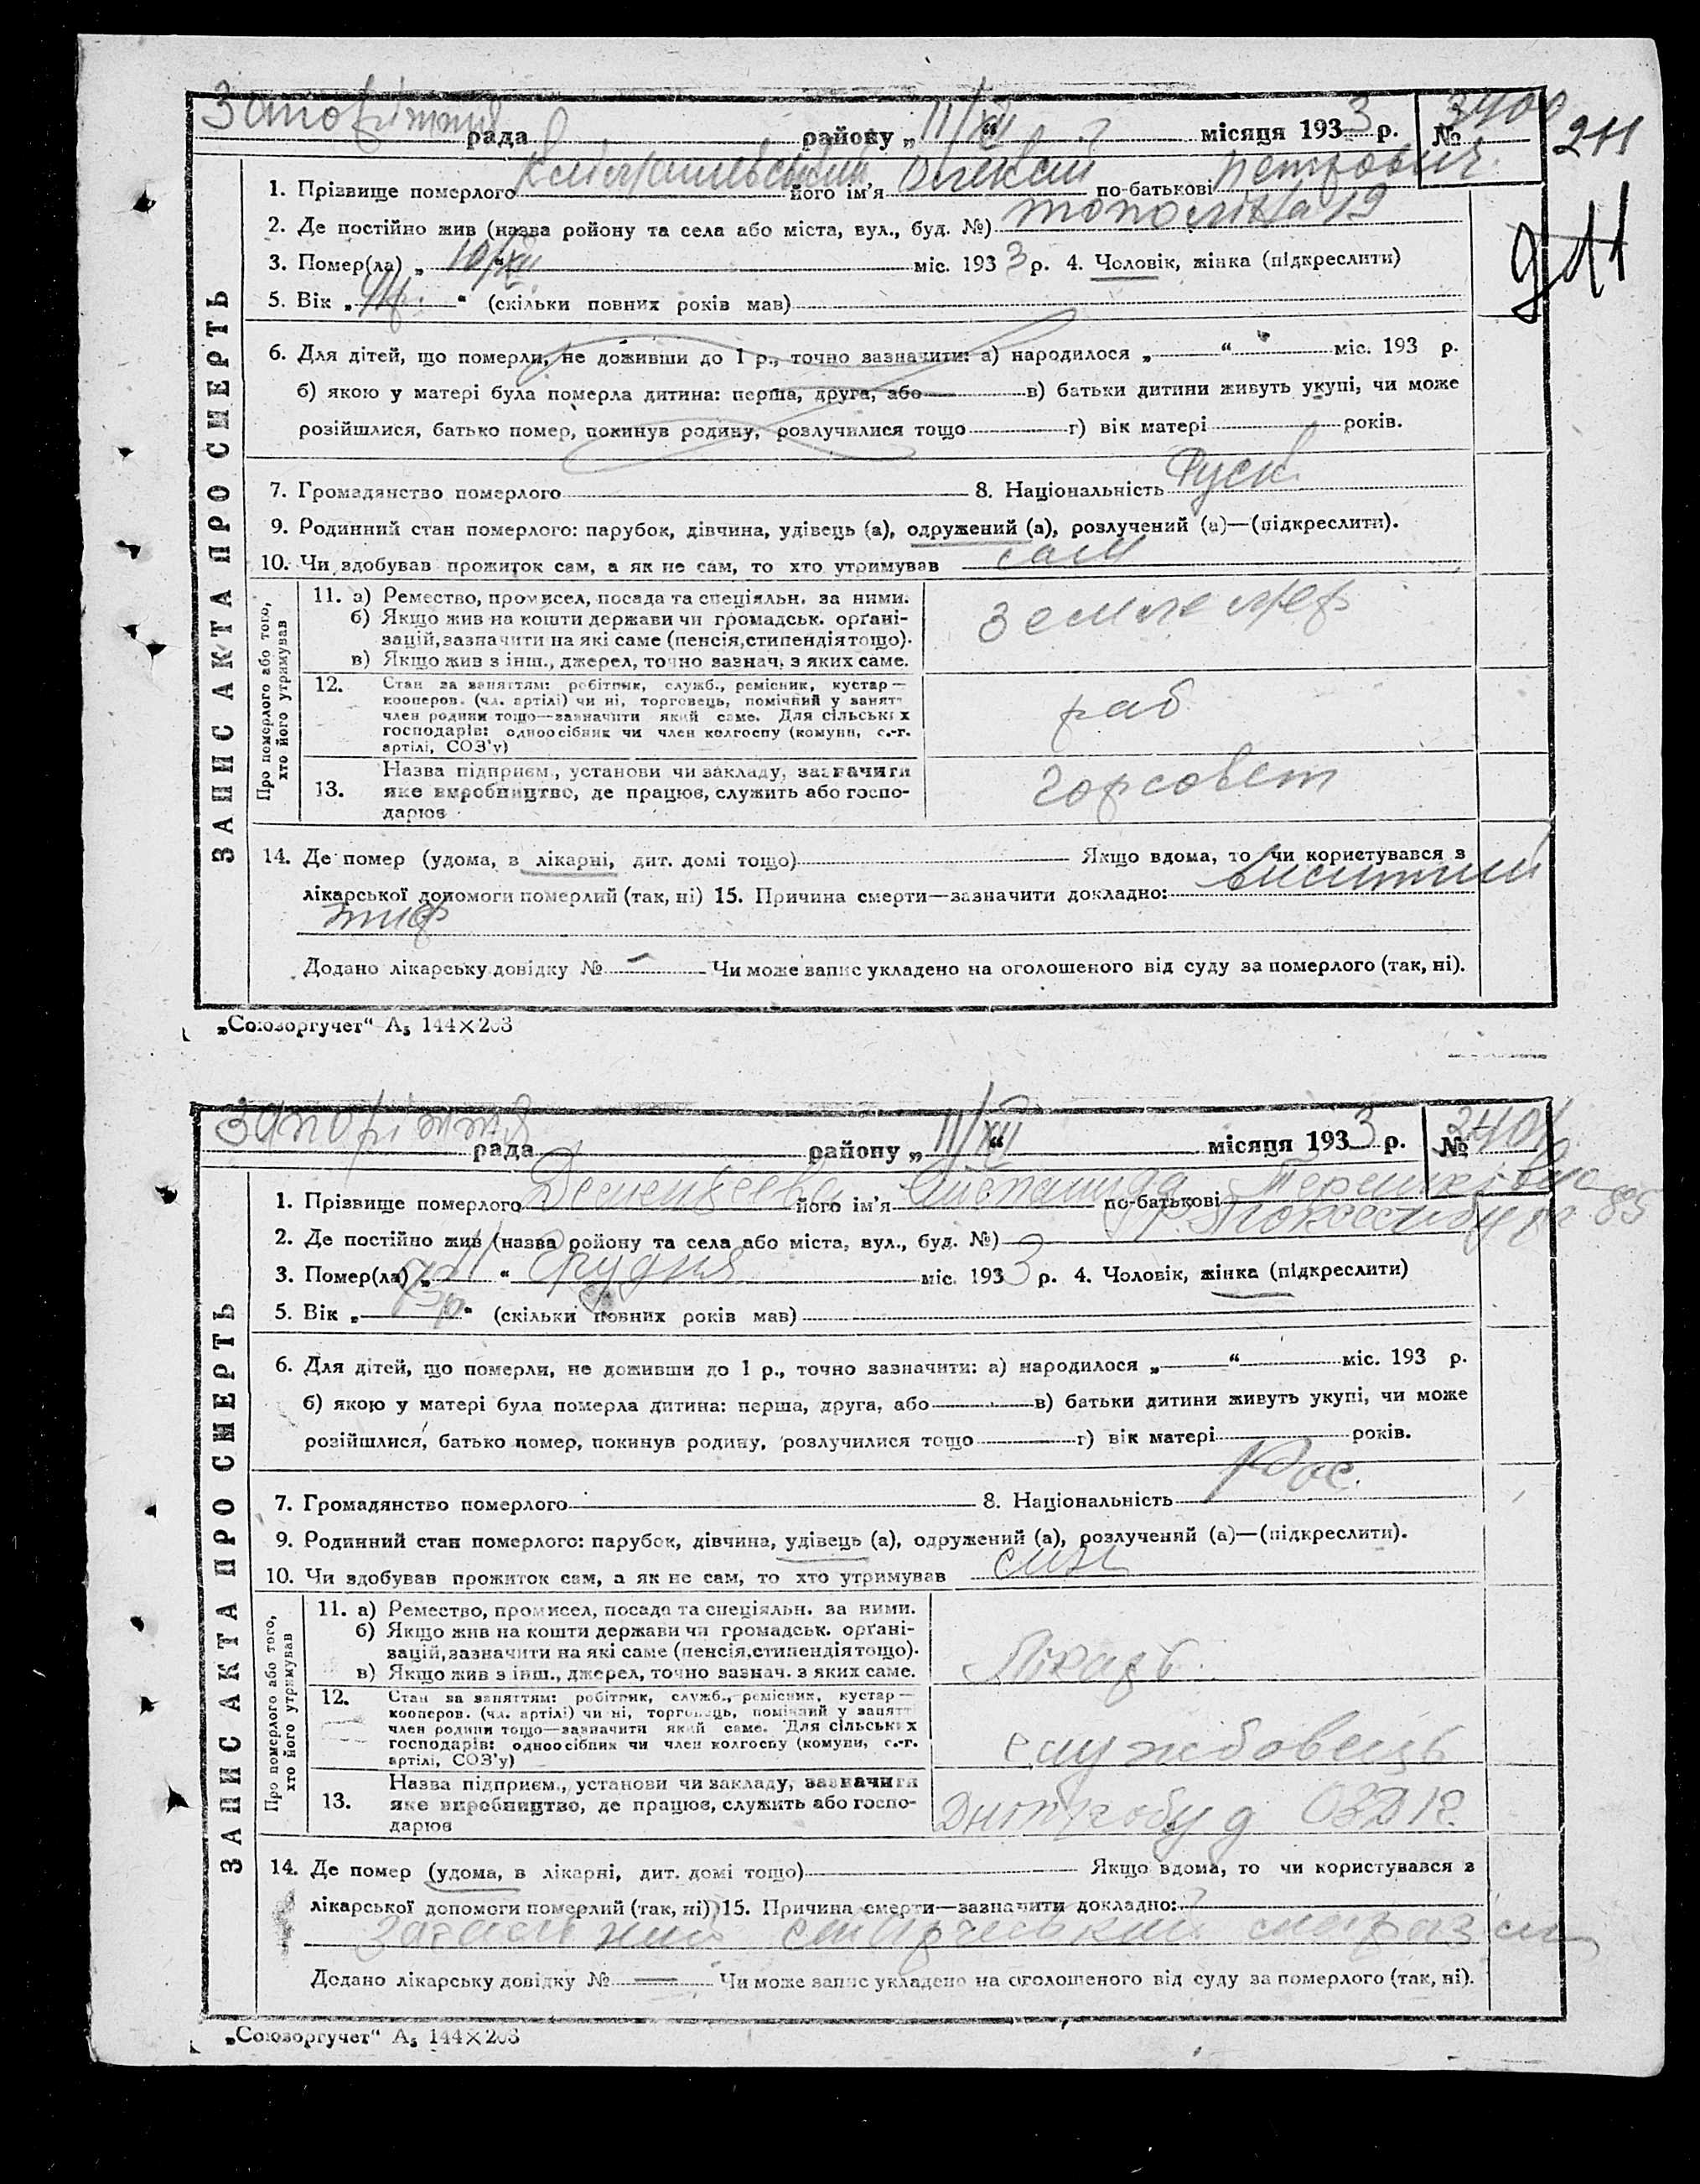 211
Запоріжжя рада району „ 11/XII “ місяця 1933 р. № 3400
1. Прізвище померлого його ім'я Олексій по-батькові Петрович.
2. Де постійно жив (назва ройону та села або міста, вул., буд. №) 19
3. Помер(ла) „ 10/XII “ міс. 1933 р. 4. Чоловік, жінка (підкреслити)
5. Вік „ “ (скільки повних років мав)
6. Для дітей, що померли, не доживши до 1 р., точно зазначити: а) народилося „ “ міс. 193 р.
б) якою у матері була померла дитина: перша, друга, або в) батьки дитини живуть укупі, чи може
розійшлися, батько помер, покинув родину, розлучилися тощо г) вік матері років.
7. Громадянство померлого 8. Національність Руск
9. Родинний стан померлого: парубок, дівчина, удівець (а), одружений (а), розлучений (а)—(підкреслити).
10. Чи здобував прожиток сам, а як не сам, то хто утримував сам
ЗАПИС АКТА ПРО СМЕРТЬ
Про померлого або того, хто його утримував
11. а) Ремество, промисел, посада та спеціяльн. за ними.
б) Якщо жив на кошти держави чи громадськ. органі-
зацій, зазначити на які саме (пенсія, стипендія тощо).
в) Якщо жив з інш., джерел, точно зазнач. з яких саме.
землемер
12. Стан за заняттям: робітник, служб., ремісник, кустар—
кооперов. (чл. артілі) чи ні, торговець, помічний у занятт
член родини тощо—зазначити який саме. Для сільських
господарів: одноосібник чи член колгоспу (комуни, с.-г.
артілі, СОЗ'у)
раб
13. Назва підприєм., установи чи закладу, зазначити
яке виробництво, де працює, служить або госпо-
дарює
горсовет
14. Де помер (удома, в лікарні, дит. домі тощо) Якщо вдома, то чи користувався з
лікарської допомоги померлий (так, ні) 15. Причина смерти—зазначити докладно:
тиф
Додано лікарську довідку № — Чи може запис укладено на оголошеного від суду за померлого (так, ні).
„Союзоргучет“ А5 144×203
Запоріжжя рада району „ 11/XII “ місяця 1933 р. № 3401
1. Прізвище померлого його ім'я по-батькові
2. Де постійно жив (назва ройону та села або міста, вул., буд. №) 85
3. Помер(ла) „ “ Грудня міс. 1933 р. 4. Чоловік, жінка (підкреслити)
5. Вік „ 73р “ (скільки повних років мав)
6. Для дітей, що померли, не доживши до 1 р., точно зазначити: а) народилося „ “ міс. 193 р.
б) якою у матері була померла дитина: перша, друга, або в) батьки дитини живуть укупі, чи може
розійшлися, батько помер, покинув родину, розлучилися тощо г) вік матері років.
7. Громадянство померлого 8. Національність Рос.
9. Родинний стан померлого: парубок, дівчина, удівець (а), одружений (а), розлучений (а)—(підкреслити).
10. Чи здобував прожиток сам, а як не сам, то хто утримував син
ЗАПИС АКТА ПРО СМЕРТЬ
Про померлого або того, хто його утримував
11. а) Ремество, промисел, посада та спеціяльн. за ними.
б) Якщо жив на кошти держави чи громадськ. органі-
зацій, зазначити на які саме (пенсія, стипендія тощо).
в) Якщо жив з інш., джерел, точно зазнач. з яких саме.
Лікарь
12. Стан за заняттям: робітник, служб., ремісник, кустар—
кооперов. (чл. артілі) чи ні, торговець, помічний у занятт
член родини тощо—зазначити який саме. Для сільських
господарів: одноосібник чи член колгоспу (комуни, с.-г.
артілі, СОЗ'у)
службовець
13. Назва підприєм., установи чи закладу, зазначити
яке виробництво, де працює, служить або госпо-
дарює
14. Де помер (удома, в лікарні, дит. домі тощо) Якщо вдома, то чи користувався з
лікарської допомоги померлий (так, ні) 15. Причина смерти—зазначити докладно:
загальний старческий маразм
Додано лікарську довідку № — Чи може запис укладено на оголошеного від суду за померлого (так, ні).
„Союзоргучет“ А5 144×203